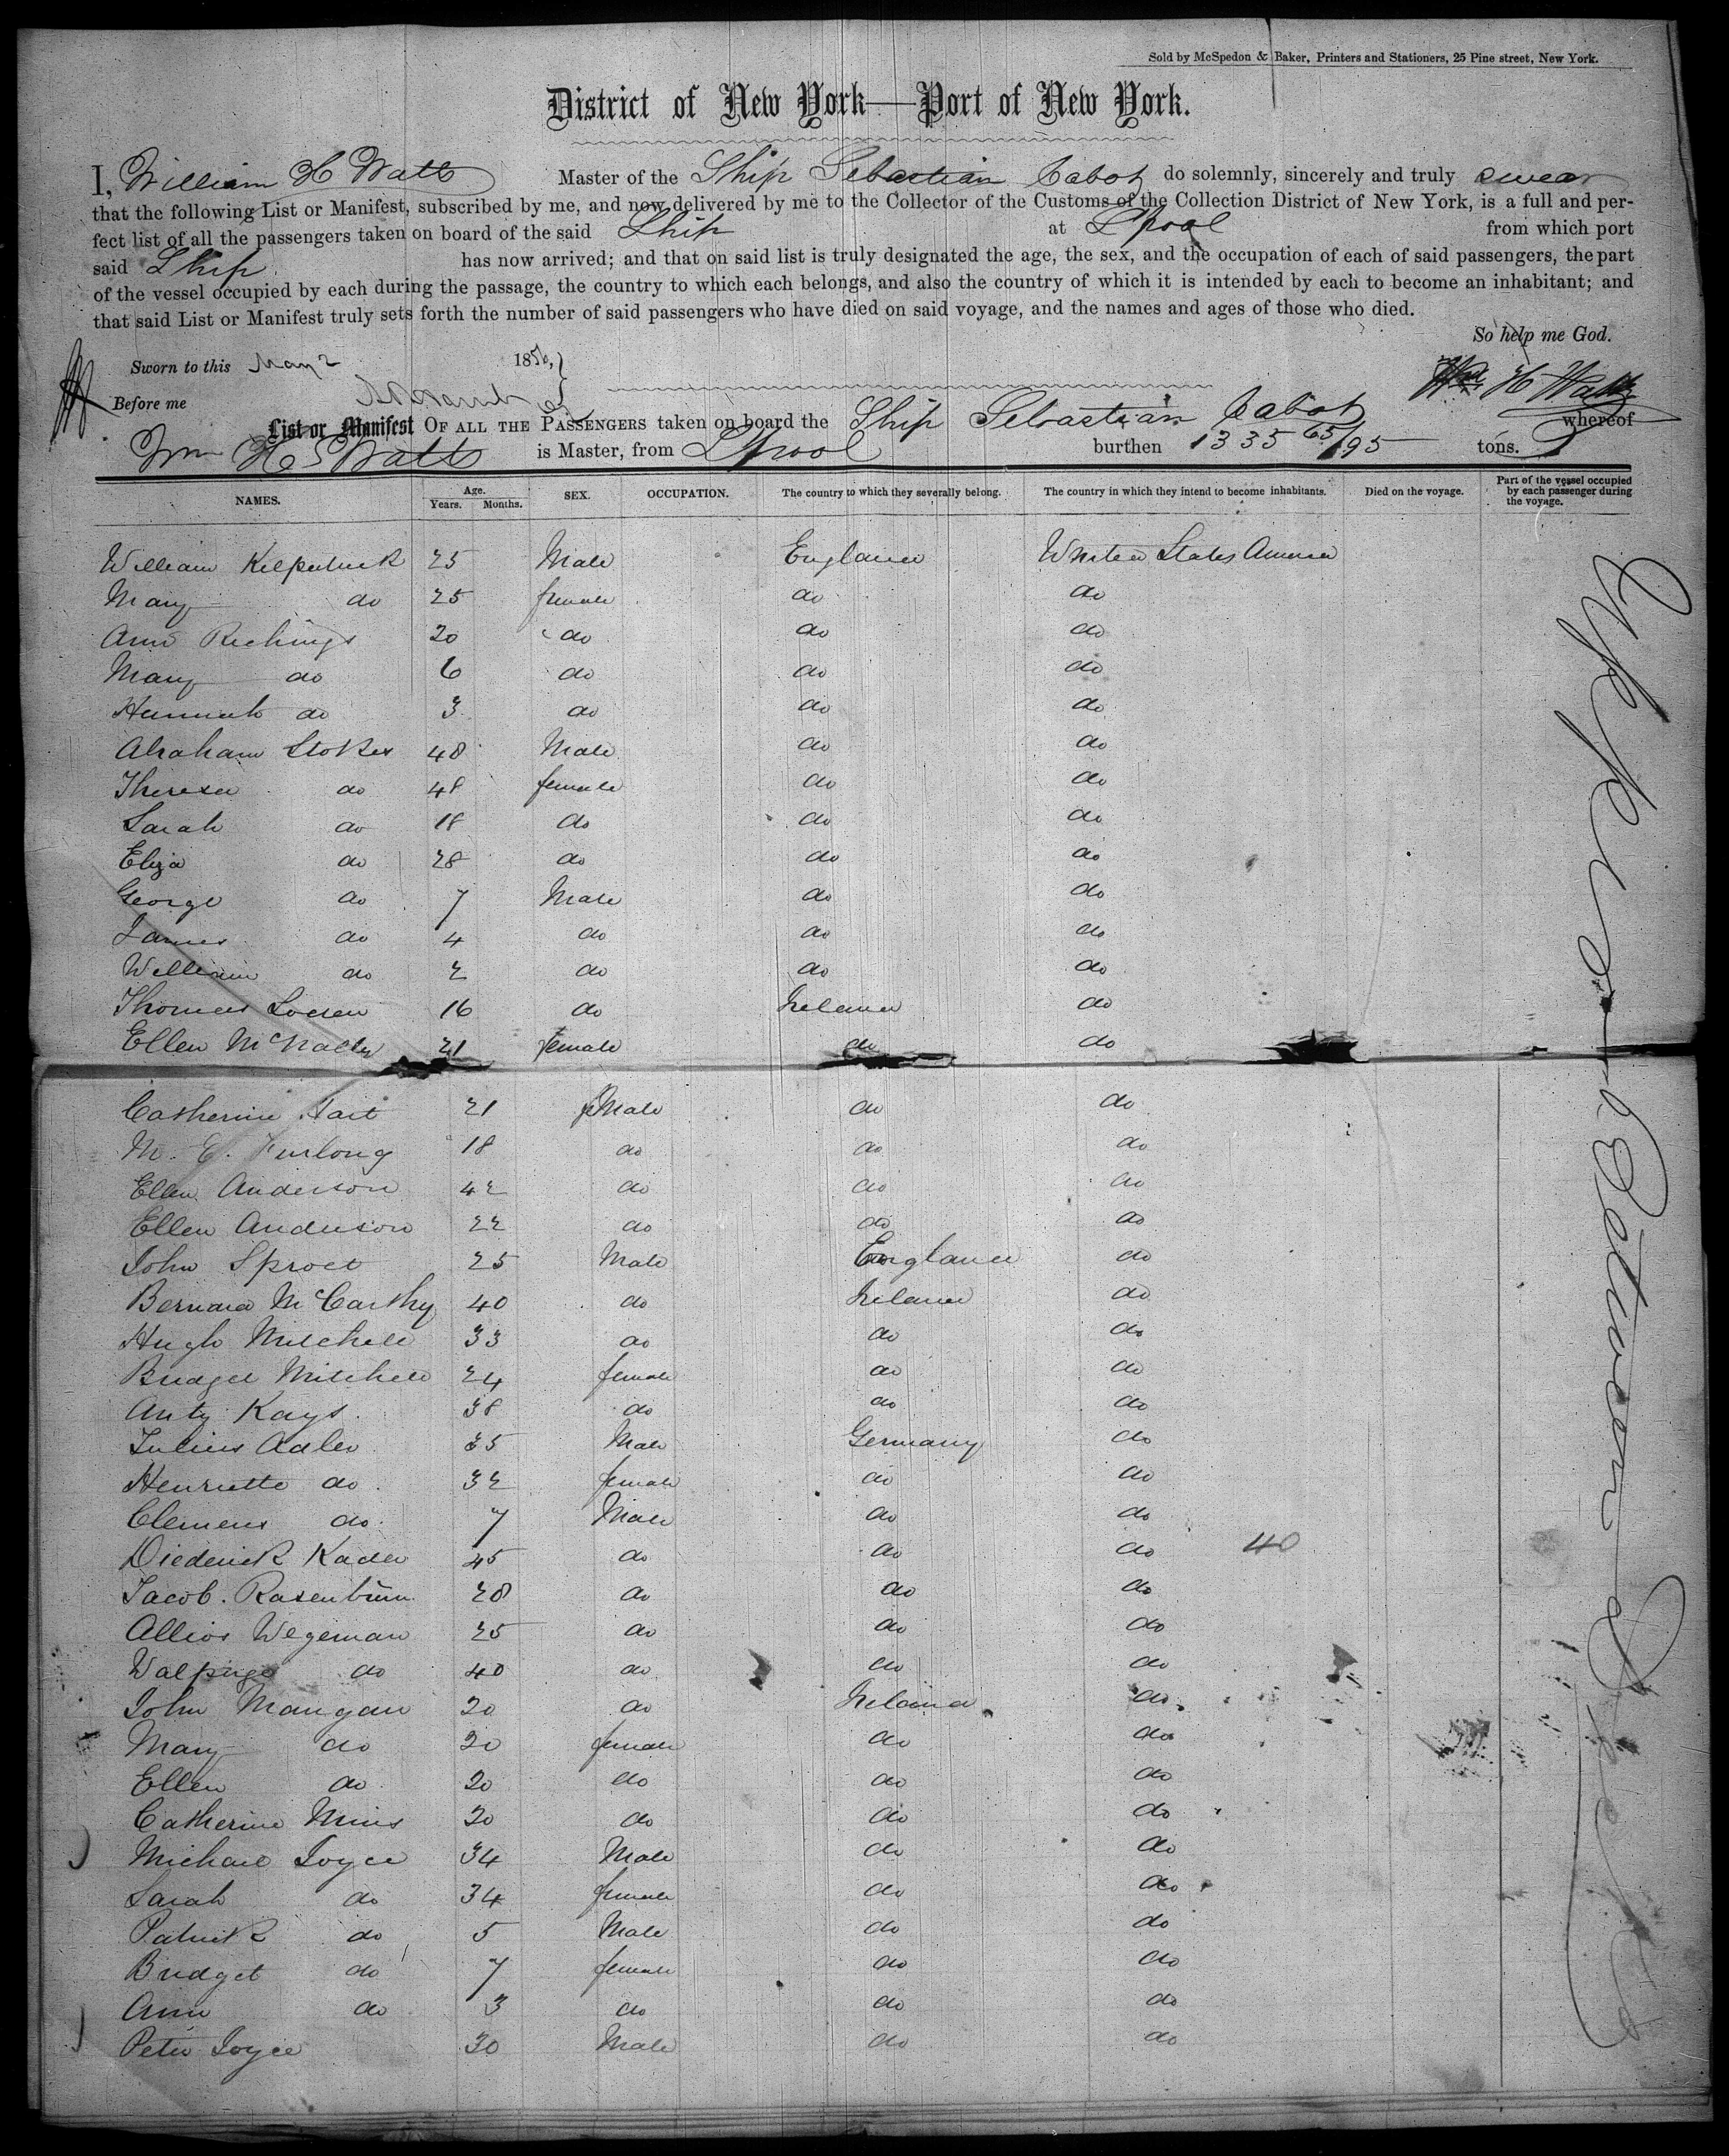 Sold by McSpedon & Baker, Printers and Stationers, 25 Pine street, New York.
District of New York—Port of New York.
I, William H Watts Master of the Ship Sebastian Cabot do solemnly, sincerely and truly swear
that the following List or Manifest, subscribed by me, and now delivered by me to the Collector of the Customs of the Collection District of New York, is a full and per-
fect list of all the passengers taken on board of the said Ship at L'pool from which port
said Ship has now arrived; and that on said list is truly designated the age, the sex, and the occupation of each of said passengers, the part
of the vessel occupied by each during the passage, the country to which each belongs, and also the country of which it is intended by each to become an inhabitant; and
that said List or Manifest truly sets forth the number of said passengers who have died on said voyage, and the names and ages of those who died.
So help me God.
Sworn to this May 2 1856,
Wm H Watts
Before me
List or Manifest OF ALL THE PASSENGERS taken on board the Ship Sebastian Cabot whereof
Wm H Watts is Master, from L'pool burthen 1335 65/95 tons.
NAMES. Age. Years. Months. SEX. OCCUPATION. The country to which they severally belong. The country in which they intend to become inhabitants. Died on the voyage. Part of the vessel occupied by each passenger during the voyage.
William Kilpatrick 25 Male England United States America
Mary do 25 female do do
Ann Richings 20 do do do
Mary do 6 do do do
Hannah do 3 do do do
Abraham Stokes 48 Male do do
Theresa do 48 female do do
Sarah do 18 do do do
Eliza do 28 do do do
George do 7 Male do do
James do 4 do do do
William do 2 do do do
Thomas 16 do Ireland do
Ellen McNally 21 female do do
Catherine Tait 21 feMale do do
M. E. Furlong 18 do do do
Ellen Anderson 42 do do do
Ellen Anderson 22 do do do
John Sproct 25 Male England do
Bernard McCarthy 40 do Ireland do
Hugh Mitchell 33 do do do
Bridget Mitchell 24 female do do
Anty Kays 38 do do do
Julius Adler 35 Male Germany do
Henriette do 32 female do do
Clemens do 7 Male do do
Diederick Kader 45 do do do 40
Jacob. Rasenbaum 28 do do do
Allios Wegeman 25 do do do
Walpurga do 40 do do do
John Mangan 20 do Ireland do
Mary do 20 female do do
Ellen do 20 do do do
Catherine Mins 20 do do do
Michael Joyce 34 Male do do
Sarah do 34 female do do
Patrick do 5 Male do do
Bridget do 7 female do do
Ann do 3 do do do
Peter Joyce 30 Male do do
Upper Between Decks